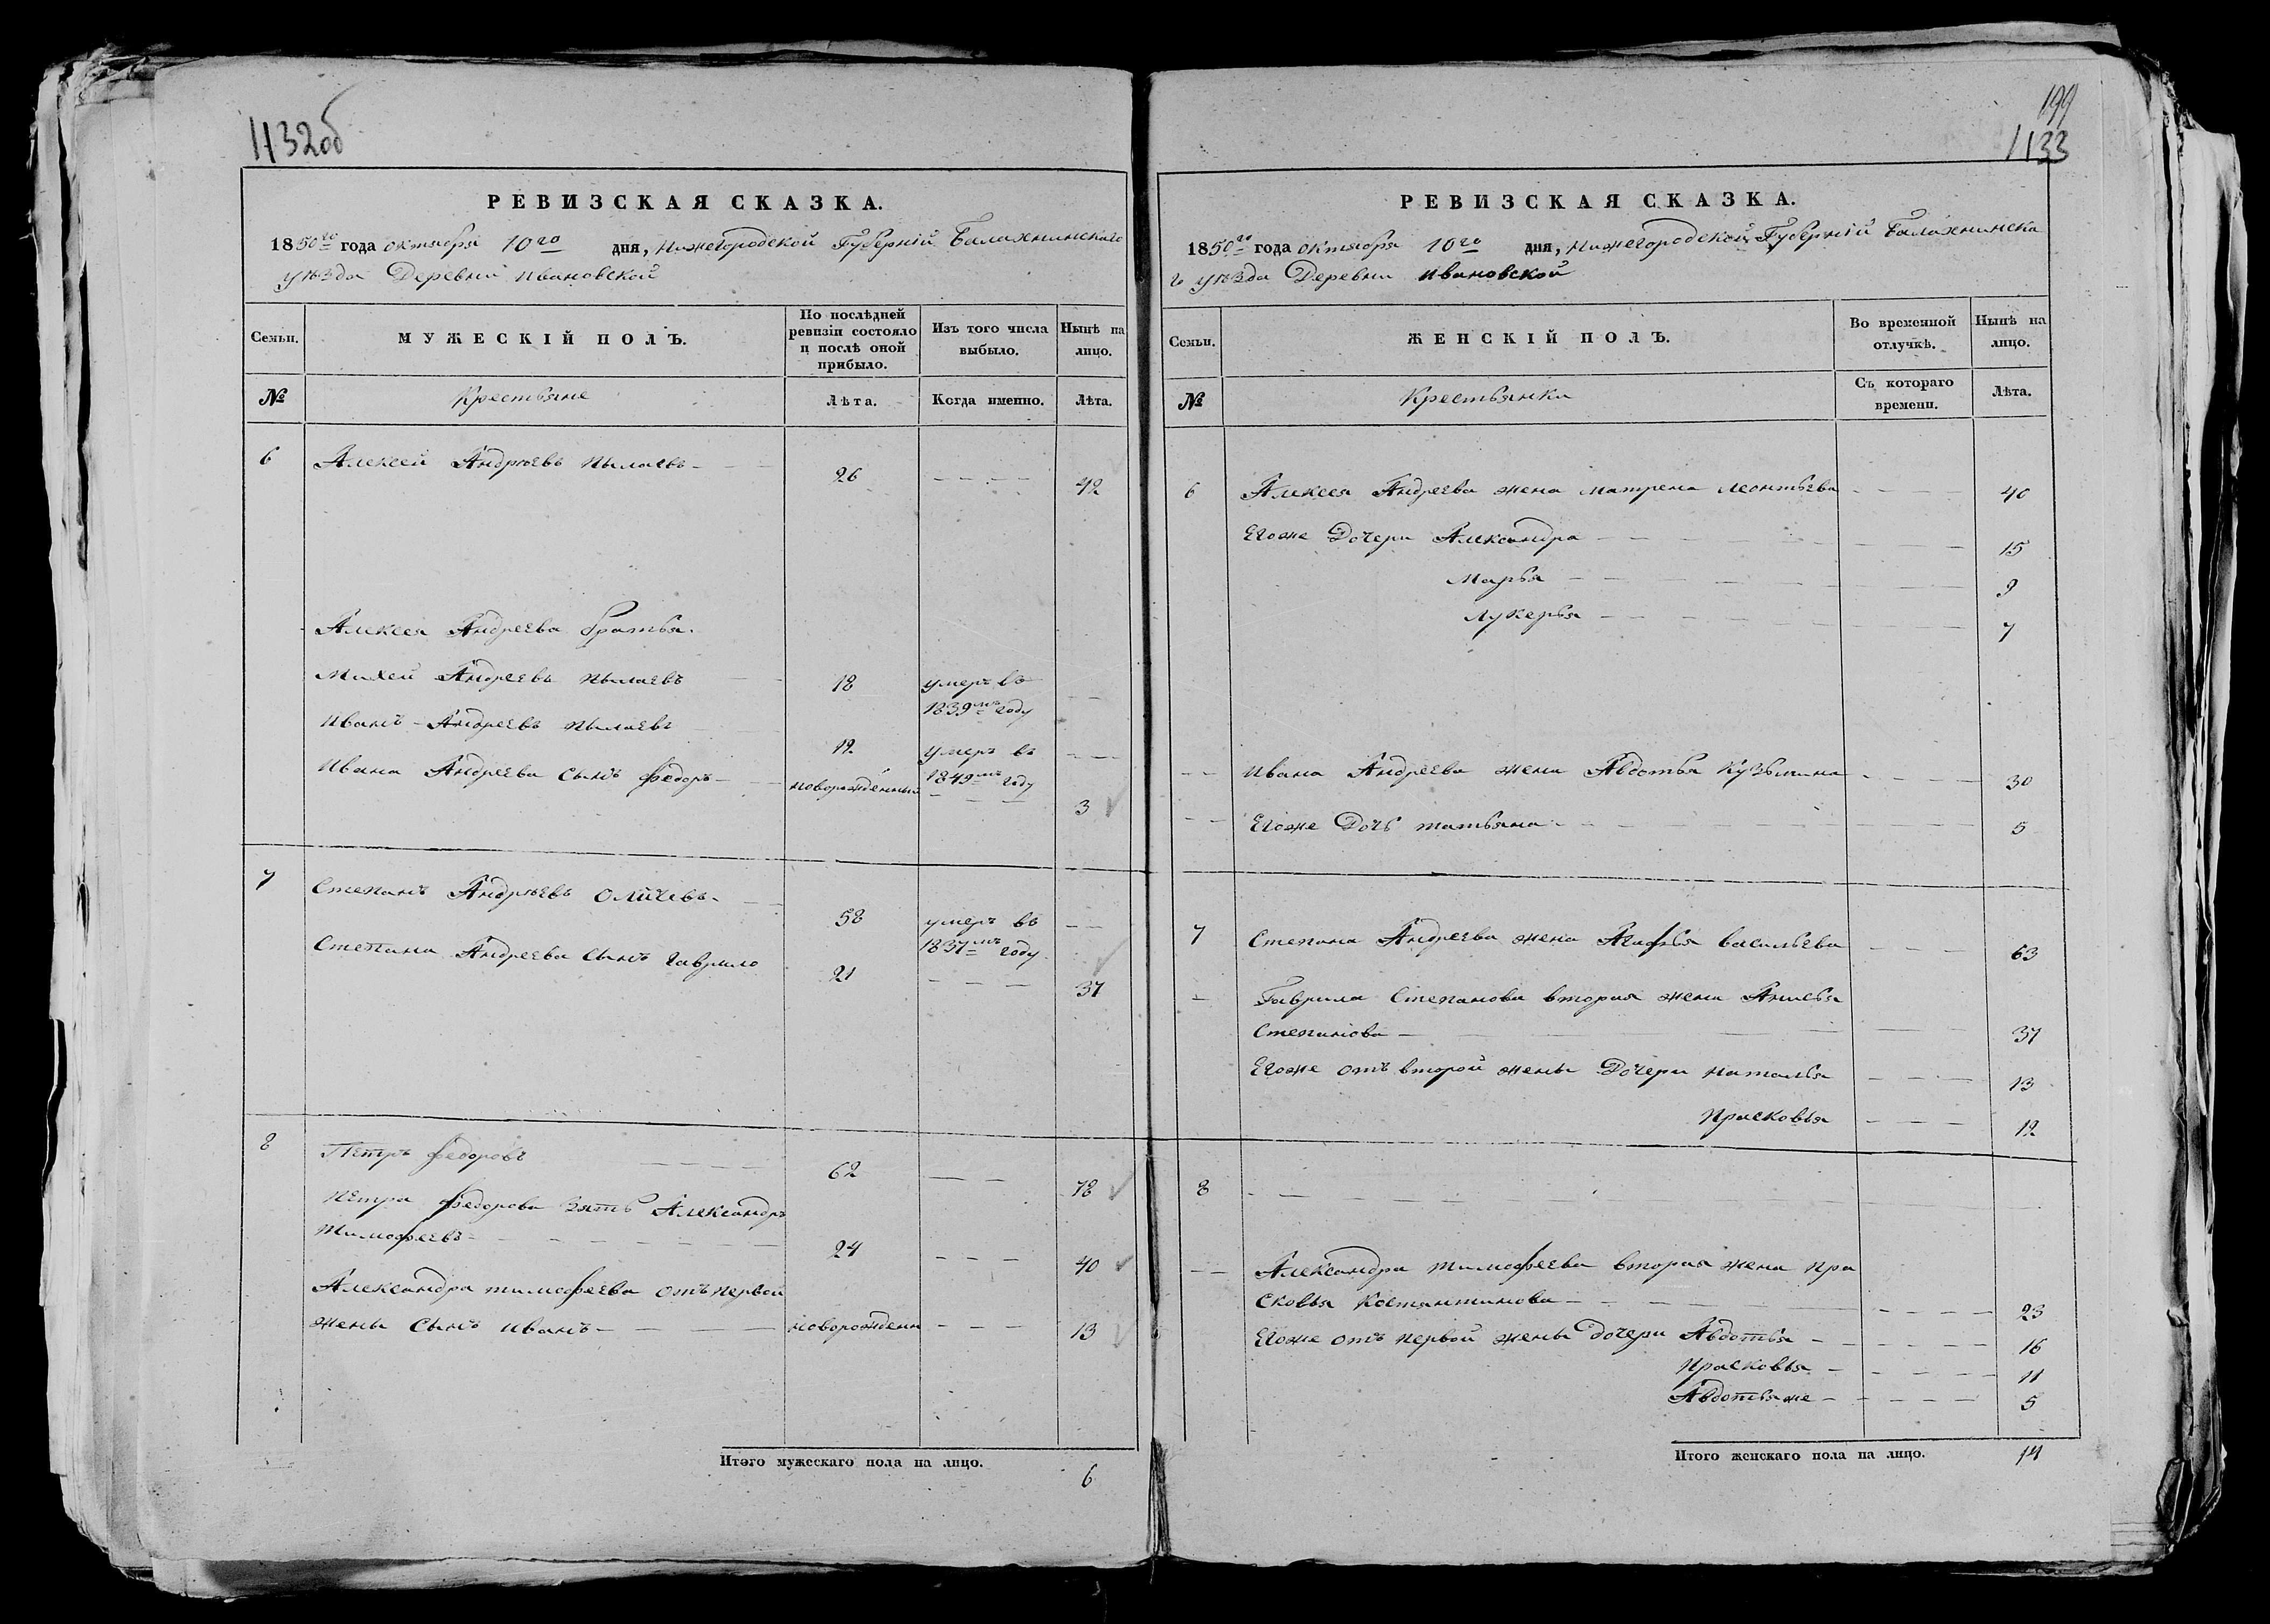 1132об
РЕВИЗСКАЯ СКАЗКА.
1850го года октября 10го дня, Нижегородской Губерніи Балахнинскаго
уѣзда Деревни Ивановской
Семьи.
МУЖЕСКІЙ ПОЛЪ.
По послѣдней
ревизіи состояло
и послѣ оной
прибыло.
Изъ того числа
выбыло.
Нынѣ на
лицо.
№
Крестьяне
Лѣта.
Когда именно.
Лѣта.
6 Алексей Андрѣевъ Пылаевъ 26 42
Алексея Андреева братья
Михей Андреевъ Пылаевъ 18 умеръ въ
1839мъ году
Иванъ Андреевъ Пылаевъ 12 умеръ въ
1849мъ году
Ивана Андреева сынъ Федоръ новорожденный 3
7 Степанъ Андрѣевъ 58 умеръ въ
1837мъ году
Степана Андреева сынъ Гаврило 21 37
8 Петръ Федоровъ 62 78
Петра Федорова зять Александръ
Тимофеевъ 24 40
Александра Тимофеева отъ первой
жены сынъ Иванъ новорожденн 13
Итого мужескаго пола на лицо. 6
199
1133
РЕВИЗСКАЯ СКАЗКА.
1850го года октября 10го дня, Нижегородской Губерніи Балахнинска
го уѣзда Деревни Ивановской
Семьи.
ЖЕНСКІЙ ПОЛЪ.
Во временной
отлучкѣ.
Нынѣ на
лицо.
№
Крестьянки
Съ котораго
времени.
Лѣта.
6 Алексея Андреева жена Матрена Леонтьева 40
Егоже Дочери Александра 15
Марья 9
Лукерья 7
Ивана Андреева жена Авдотья Кузьмина 30
Егоже Дочь Татьяна 5
7 Степана Андреева жена Агафья Васильева 63
Гаврила Степанова вторая жена Анисья
Степанова 37
Егоже отъ второй жены Дочери Наталья 13
Прасковья 12
8
Александра Тимофеева вторая жена Пра
сковья Костянтинова 23
Егоже отъ первой жены дочери Авдотья 16
Прасковья 11
Авдотья же 5
Итого женскаго пола на лицо. 14